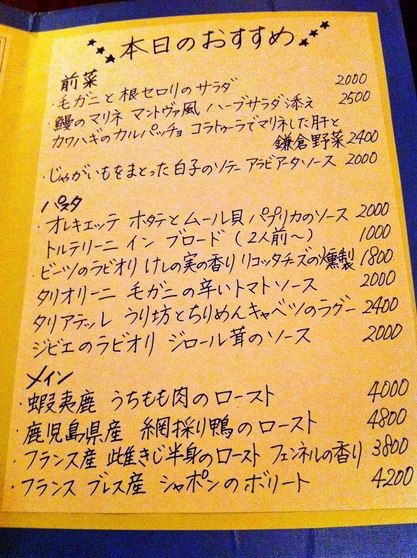 本日のおすすめ
前菜
・毛ガニと根セロリのサラダ 2000
鰻のマリネ マントヴァ風 ハーブサラダ添え 2500
カワハギのカルパッチョ コラトゥーラでマリネした肝と
鎌倉野菜 2400
・じゃがいもをまとった白子のソテー アラビアータソース 2000
パスタ
・オレキエッテ ホタテとムール貝 パプリカのソース 2000
トルテリーニ イン ブロード (2人前〜) 1000
ビーツのラビオリ けしの実の香り リコッタチーズの燻製 1800
タリオリーニ 毛ガニの辛いトマトソース 2000
タリアテッレ うり坊とちりめんキャベツのラグー 2400
ジビエのラビオリ ジロール茸のソース 2000
メイン
・蝦夷鹿 うちもも肉のロースト 4000
・鹿児島県産 網採り鴨のロースト 4800
・フランス産 雌きじ半身のロースト フェンネルの香り 3800
・フランス ブレス産 シャポンのボリート 4200